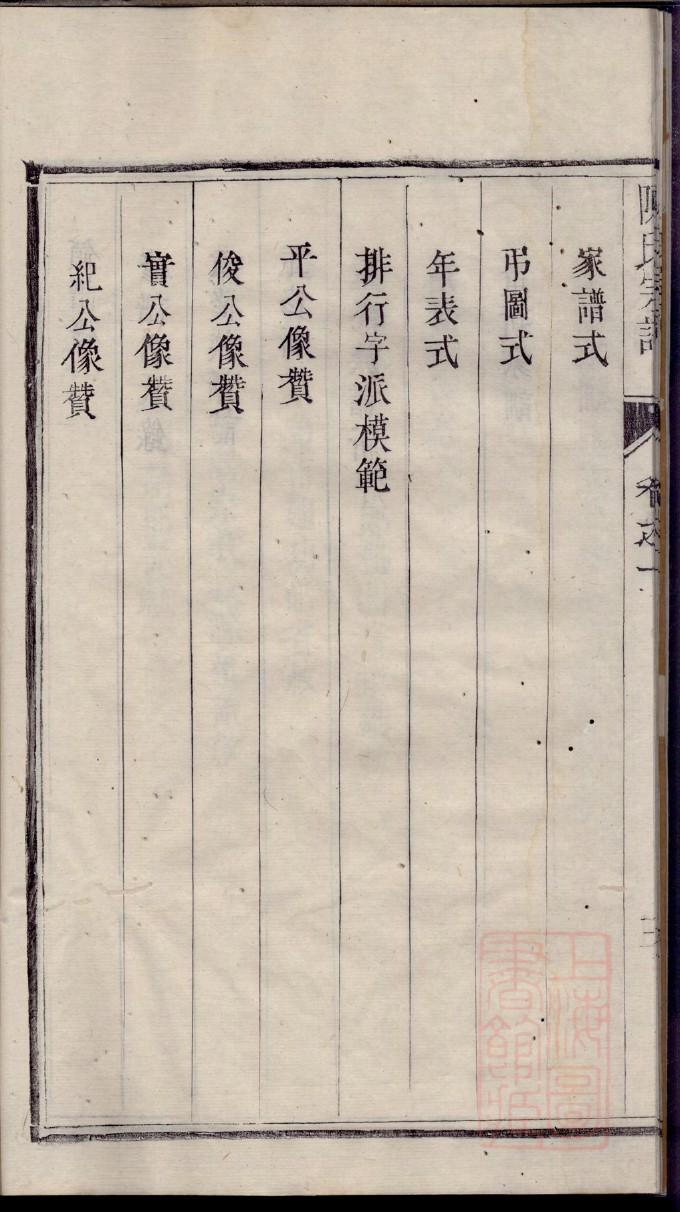 陳氏宗譜
卷之一
家譜式
弔圖式
年表式
排行字派模範
平公像贊
俊公像贊
實公像贊
紀公像贊
上海圖書館藏